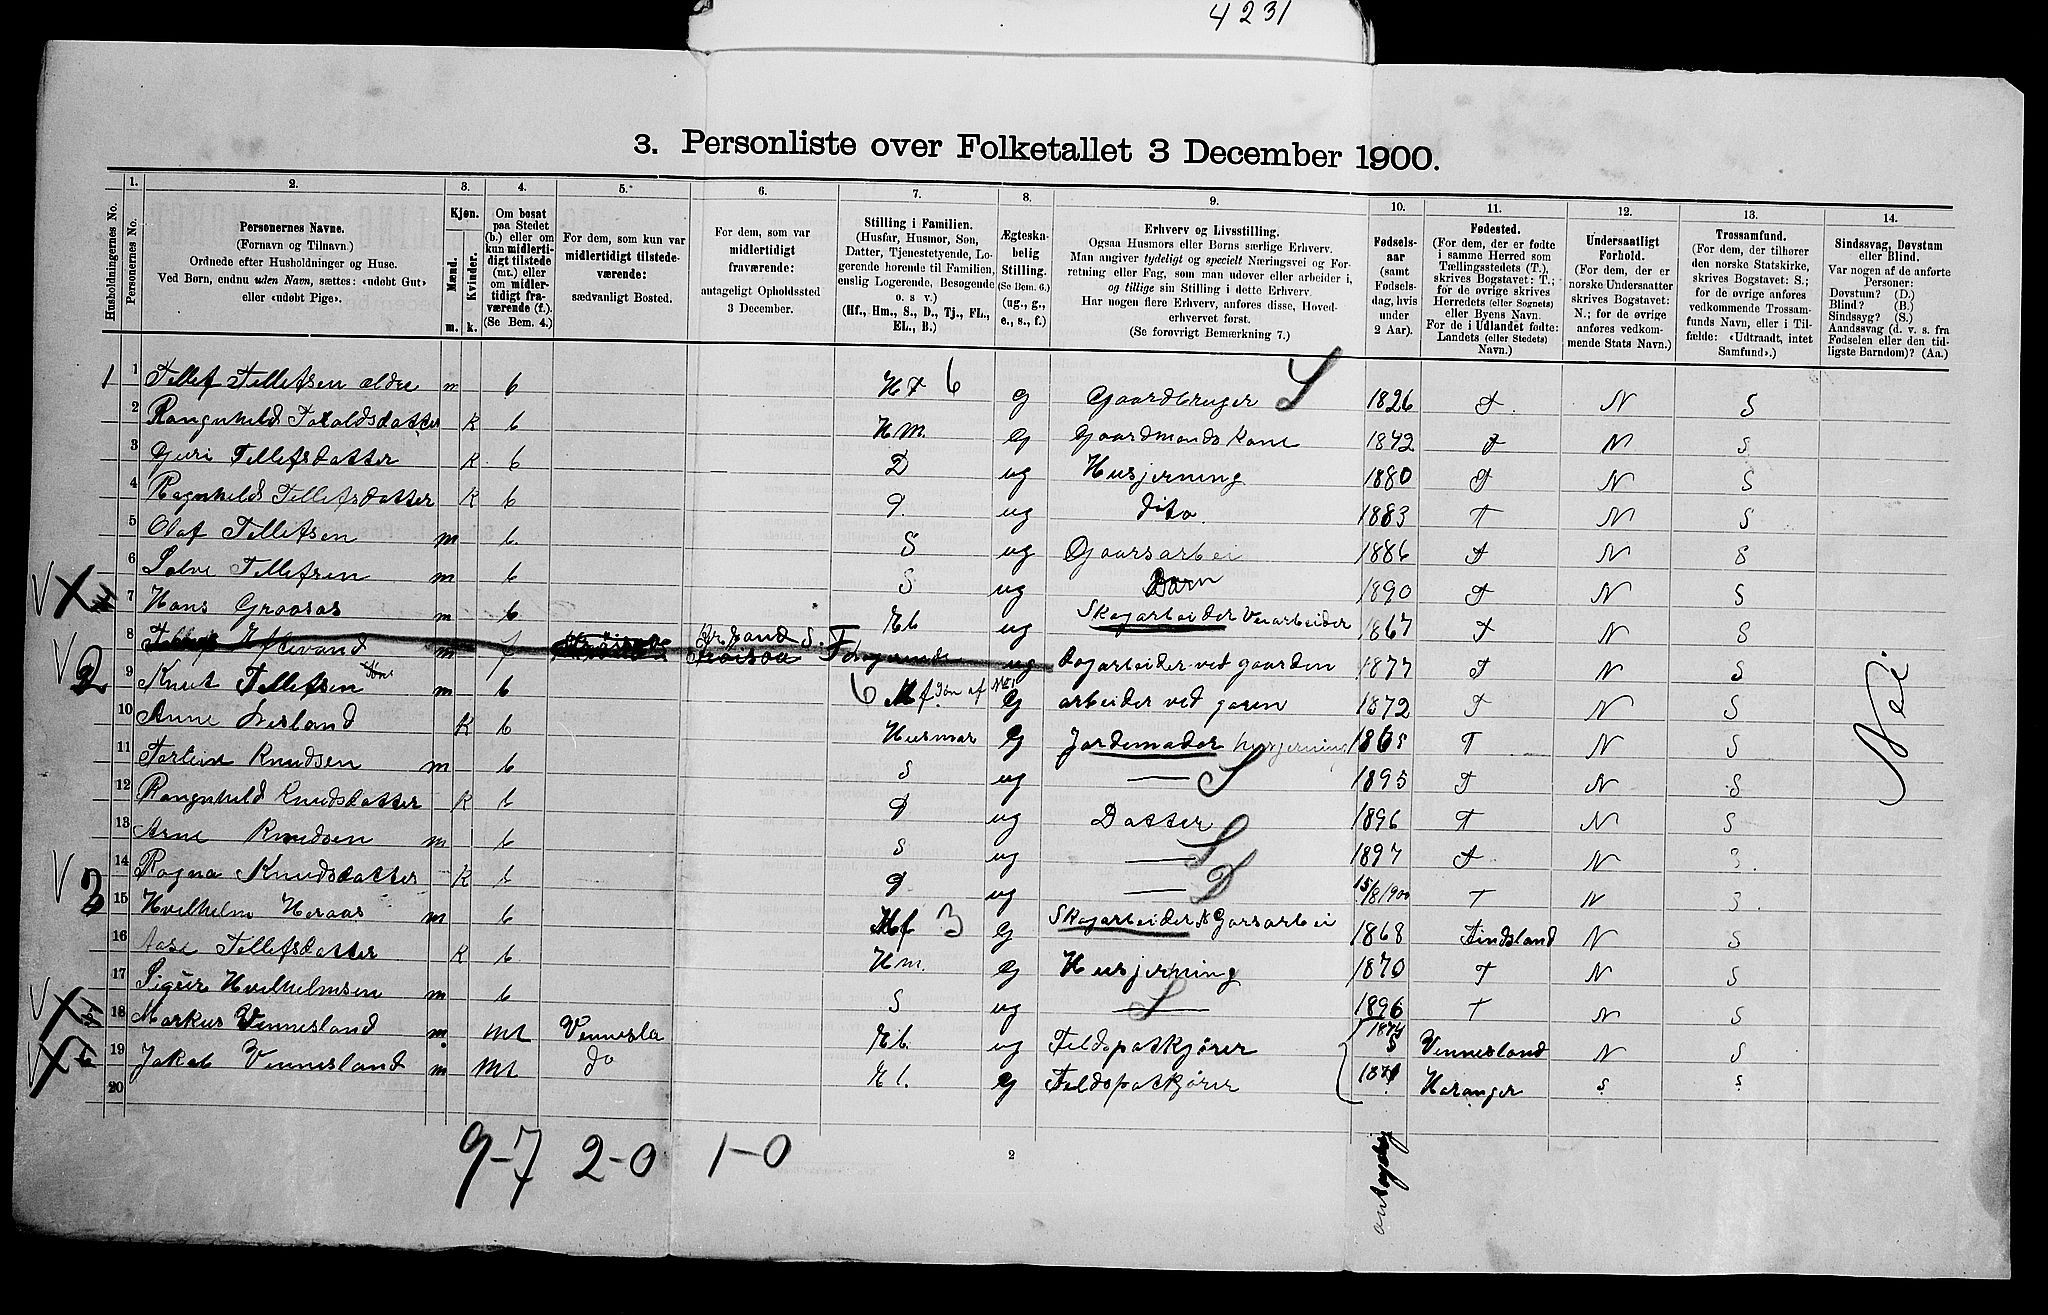 4231
3. Personliste over Folketallet 3 December 1900.
Husholdningernes No.
1.
Personernes No.
2.
Personernes Navne.
(Fornavn og Tilnavn.)
Ordnede efter Husholdninger og Huse.
Ved Børn, endnu uden Navn, sættes: «udøbt Gut»
eller «udøbt Pige».
3.
Kjøn.
Mænd.
Kvinder.
m. k.
4.
Om bosat
paa Stedet
(b.) eller om
kun midlerti-
digt tilstede
(mt.) eller
om midler-
tidigt fra-
værende (f.).
(Se Bem. 4.)
5.
For dem, som kun var
midlertidigt tilstede-
værende:
sædvanligt Bosted.
6.
For dem, som var
midlertidigt
fraværende:
antageligt Opholdssted
3 December.
7.
Stilling i Familien.
(Husfar, Husmor, Søn,
Datter, Tjenestetyende, Lo-
gerende hørende til Familien,
enslig Logerende, Besøgende
o. s v.)
(Hf., Hm., S., D., Tj., FL.,
EL., B.)
8.
Ægteska-
belig
Stilling.
(Se Bem. 6.)
(ug., g.,
e., s., f.)
9.
Erhverv og Livsstilling.
Ogsaa Husmors eller Børns særlige Erhverv.
Man angiver tydeligt og specielt Næringsvei og For-
retning eller Fag, som man udøver eller arbeider i,
og tillige sin Stilling i dette Erhverv.
Har nogen flere Erhverv, anføres disse, Hoved-
erhvervet først.
(Se forøvrigt Bemærkning 7.)
10.
Fødsels-
aar
(samt
Fødsels-
dag, hvis
under
2 Aar).
11.
Fødested.
(For dem, der er fødte
i samme Herred som
Tællingsstedets (T.),
skrives Bogstavet: T.;
for de øvrige skrives
Herredets (eller Sognets)
eller Byens Navn.
For de i Udlandet fødte:
Landets (eller Stedets)
Navn.)
12.
Undersaatligt
Forhold.
(For dem, der er
norske Undersaatter
skrives Bogstavet:
N.; for de øvrige
anføres vedkom-
mende Stats Navn.)
13.
Trossamfund.
(For dem, der tilhører
den norske Statskirke,
skrives Bogstavet: S.;
for de øvrige anføres
vedkommende Trossam-
funds Navn, eller i Til-
fælde: «Udtraadt, intet
Samfund».)
14.
Sindssvag, Døvstum
eller Blind.
Var nogen af de anførte
Personer:
Døvstum? (D.)
Blind? (B.)
Sindssyg? (S.)
Aandssvag (d. v. s. fra
Fødselen eller den tid-
ligste Barndom)? (Aa.)
1 1 Tellef Tellefsen ældre m b Hf 6 g Gaardbruger S 1826 T N S
2 Rangnheld Taraldsdatter K b Hm. G Gaardmands Kone 1842 T N S
3 Guri Tellefsdatter K b D ug Husjerning 1880 T N S
4 Ragnheld Tellefsdatter K b D. ug dito 1883 T N S
5 Olaf Tellefsen m b. S ug Gaarsarbei 1886 T N S
6 Salve Tellefsen m b S ug Barn 1890 T N S
V X 7 Hans Graasas m b. El ug Skogarbeider Veiarbeider 1867 T N S
8 m f Froisaa ug Dagarbeider ved gaarden 1877 T N S
V 2 9 Knut Tellefsen m b 6 Hf. søn af G arbeider ved garen 1872 T N S
10 Anne K b Husmor G Jordemoder husjerning 1865 T N S
11 Tarlein Knudsen m b S ug — S 1895 T N S
12 Rangnheld Knudsdatter K b D ug Datter 1896 T N S
13 Arne Knudsen m b S ug — S 1897 T N S
14 Ragna Knudsdatter K b D ug — D 15/8 1900 T N S.
V 3 15 Hvilhelm Heraas m b Hf 3 G Skogarbeider Garsarbei 1868 Findsland N S
16 Aase Tellefsdatter K b Hm. G Husjerning 1870 T N S
17 Sigur Hvilhelmsen m b S ug — S 1896 T N S
V X 18 Markus Vennesland m mt Vennesla El. ug Feldspatkjører 1874 Vennesland N S
V X 19 Jakob Vennesland m mt do El. G Feldspatkjører 1871 Haranger S S
20
Nei
9-7 2-0 1-0
2